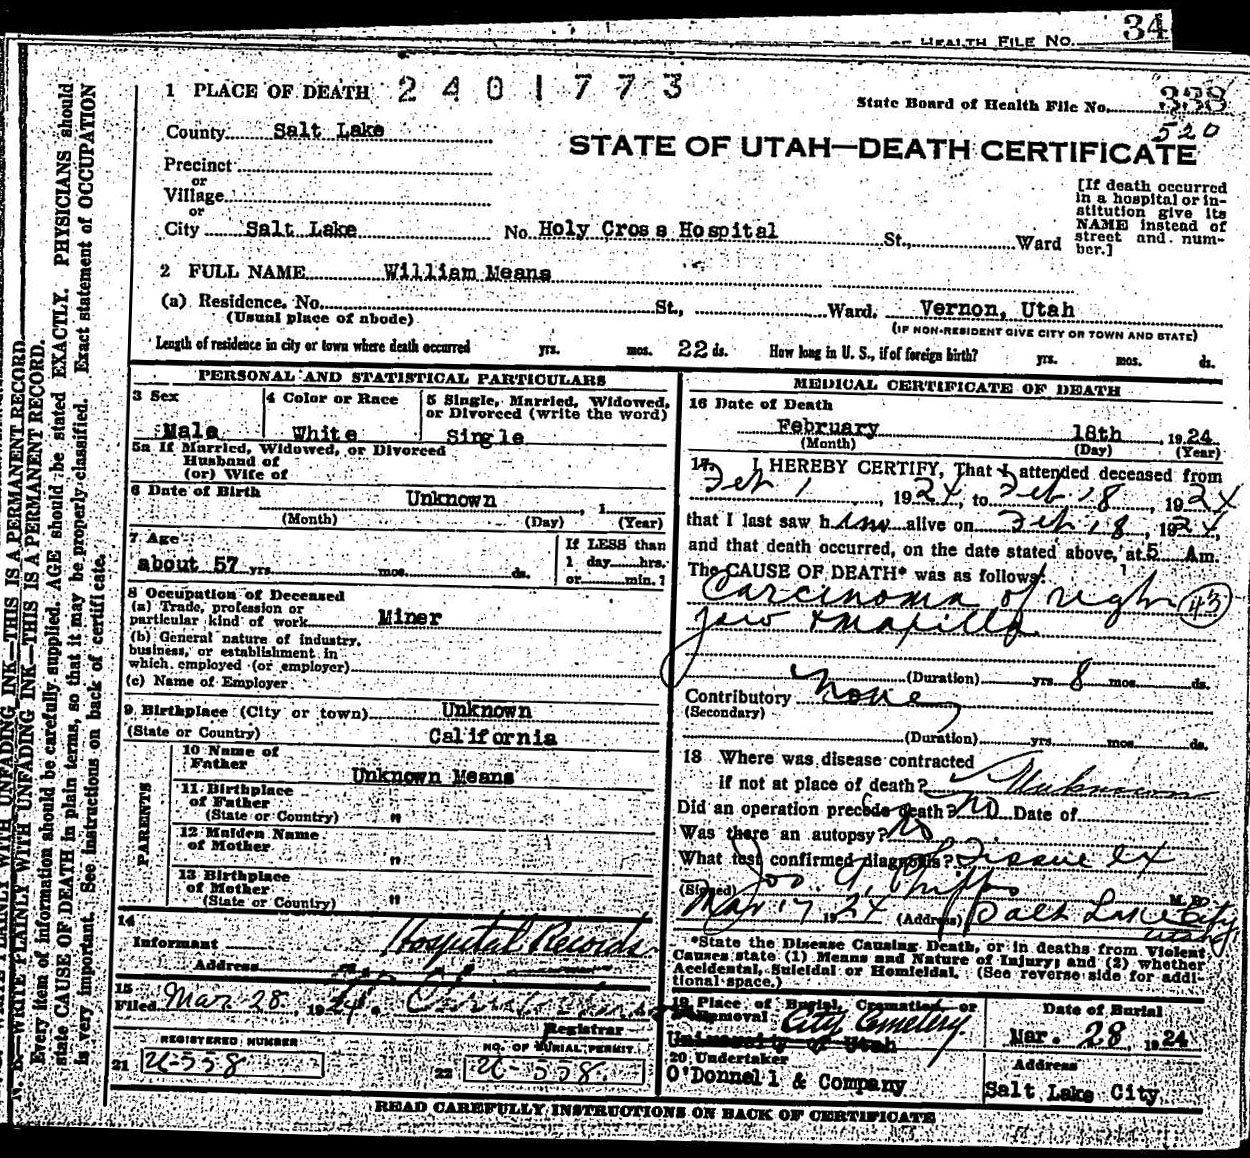 OF HEALTH FILE NO. 34
1 PLACE OF DEATH 2401773
State Board of Health File No. 338
520
County Salt Lake
STATE OF UTAH—DEATH CERTIFICATE
Precinct
or
Village
or
City Salt Lake No. Holy Cross Hospital St., Ward
[If death occurred
in a hospital or in-
stitution give its
NAME instead of
street and num-
ber.]
2 FULL NAME William Means
(a) Residence. No. St., Ward. Vernon, Utah
(Usual place of abode) (IF NON-RESIDENT GIVE CITY OR TOWN AND STATE)
Length of residence in city or town where death occurred yrs. mos. 22 ds. How long in U. S., if of foreign birth? yrs. mos. ds.
PERSONAL AND STATISTICAL PARTICULARS
3 Sex
Male
4 Color or Race
White
5 Single, Married, Widowed,
or Divorced (write the word)
Single
5a If Married, Widowed, or Divorced
Husband of
(or) Wife of
6 Date of Birth Unknown , 1
(Month) (Day) (Year)
7 Age
about 57 yrs. mos. ds.
If LESS than
1 day hrs.
or min.?
8 Occupation of Deceased
(a) Trade, profession or
particular kind of work Miner
(b) General nature of industry,
business, or establishment in
which employed (or employer)
(c) Name of Employer
9 Birthplace (City or town) Unknown
(State or Country) California
PARENTS
10 Name of
Father
Unknown Means
11 Birthplace
of Father
(State or Country) "
12 Maiden Name
of Mother
"
13 Birthplace
of Mother
(State or Country) "
14
Informant Hospital Records
Address
15
Filed Mar 28, 1924.
Registrar
REGISTERED NUMBER
21 U-558
NO. OF BURIAL PERMIT
22 U-558.
MEDICAL CERTIFICATE OF DEATH
16 Date of Death
February 18th , 1924
(Month) (Day) (Year)
17. I HEREBY CERTIFY, That I attended deceased from
Feb 1 , 1924, to Feb 18 , 1924
that I last saw him alive on Feb 18, 1924,
and that death occurred, on the date stated above, at 5 Am.
The CAUSE OF DEATH* was as follows:
Carcinoma of right 43
jaw & maxilla
(Duration) yrs. 8 mos. ds.
Contributory none
(Secondary)
(Duration) yrs. mos. ds.
18 Where was disease contracted
if not at place of death? Unknown
Did an operation precede death? No Date of
Was there an autopsy? No
What test confirmed diagnosis? Tissue ex
(Signed) Jos. M. D.
Mar 17 1924 (Address) Salt Lake City
Utah
*State the Disease Causing Death, or in deaths from Violent
Causes state (1) Means and Nature of Injury; and (2) whether
Accidental, Suicidal or Homicidal. (See reverse side for addi-
tional space.)
19 Place of Burial, Cremation or
Removal City Cemetery
University of Utah
Date of Burial
Mar. 28, 1924
20 Undertaker
O'Donnell & Company
Address
Salt Lake City,
READ CAREFULLY INSTRUCTIONS ON BACK OF CERTIFICATE
N. B.—WRITE PLAINLY WITH UNFADING INK—THIS IS A PERMANENT RECORD.
Every item of information should be carefully supplied. AGE should be stated EXACTLY. PHYSICIANS should
state CAUSE OF DEATH in plain terms, so that it may be properly classified. Exact statement of OCCUPATION
is very important. See instructions on back of certificate.